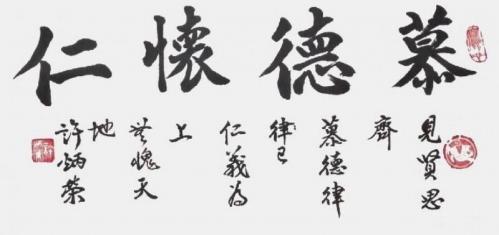 慕德懷仁
見賢思
齊
慕德律
律己
仁義為
上
無愧天
地
許炳榮